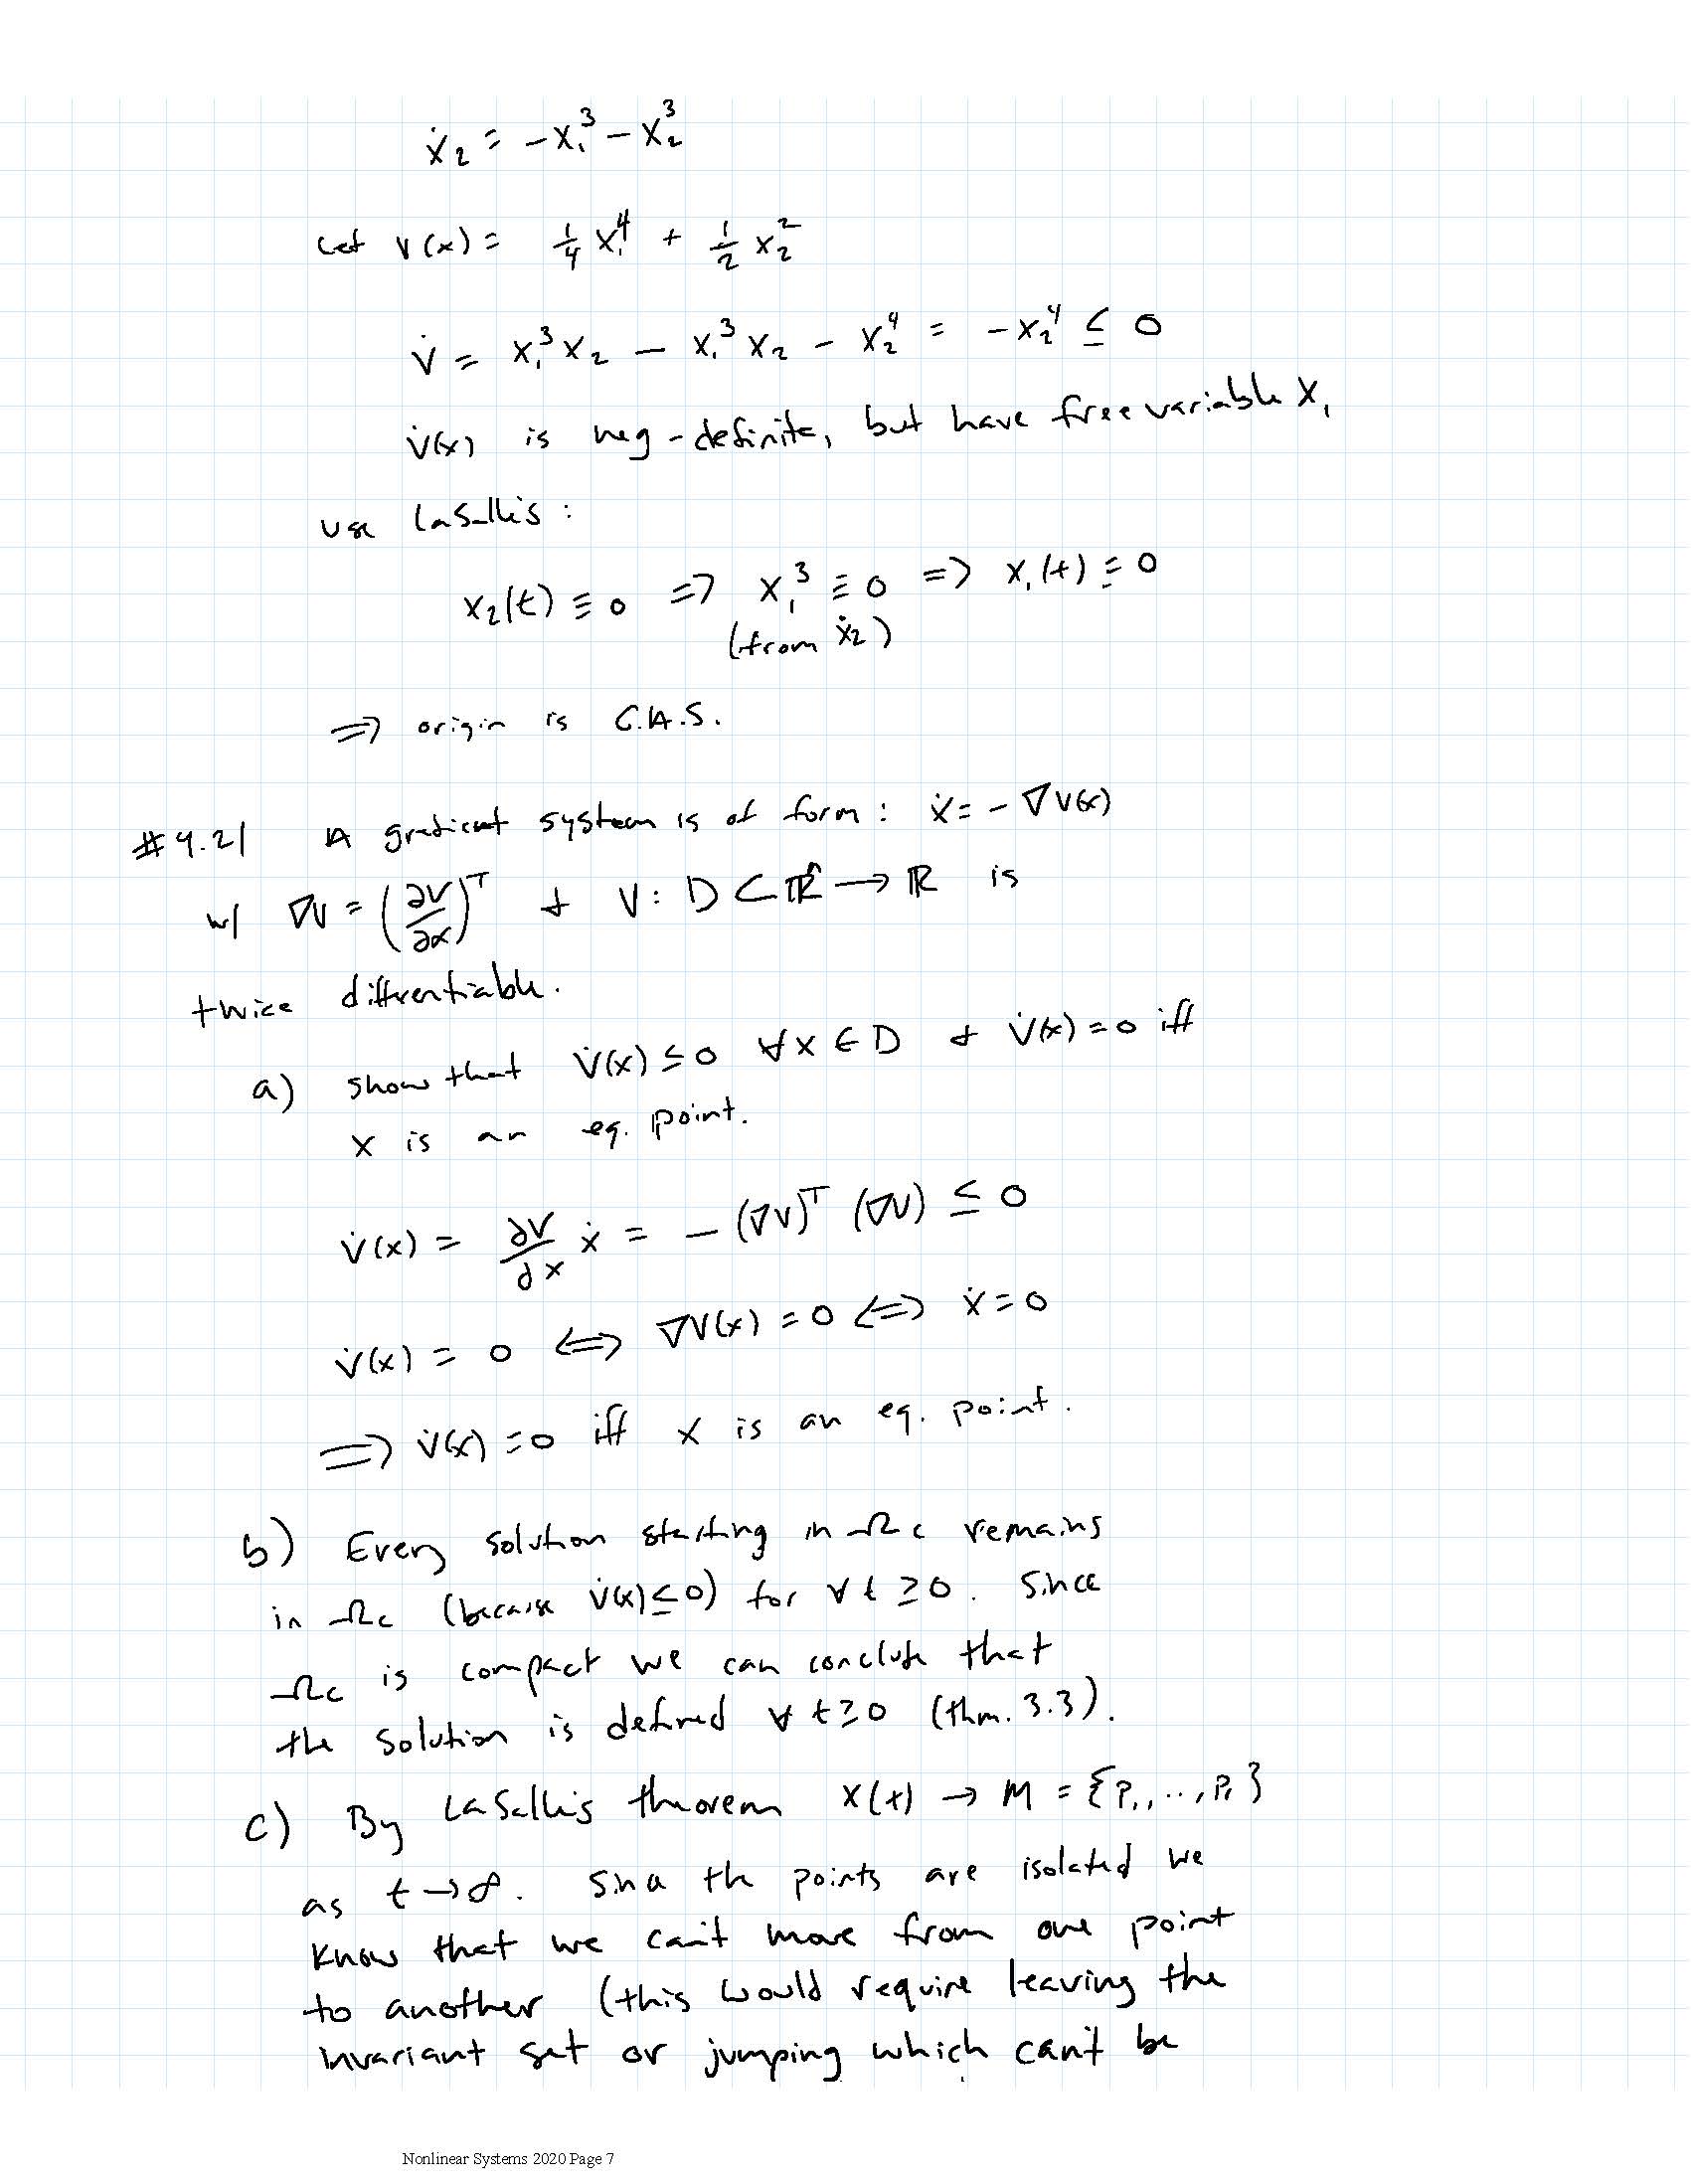 ẋ₂ = -x₁³ - x₂³
Let V(x) = 1/4 x₁⁴ + 1/2 x₂²
V̇ = x₁³x₂ - x₁³x₂ - x₂⁴ = -x₂⁴ ≤ 0
V̇(x) is neg-definite, but have free variable x₁
use LaSalle's :
x₂(t) ≡ 0 => x₁³ ≡ 0 => x₁(t) ≡ 0
(from ẋ₂)
=> origin is G.A.S.
#4.21 A gradient system is of form : ẋ = -∇V(x)
w/ ∇V = (∂V/∂x)ᵀ & V : D ⊂ ℝⁿ → ℝ is
twice differentiable.
a) show that V̇(x) ≤ 0 ∀x ∈ D & V̇(x) = 0 iff
x is an eq. point.
V̇(x) = ∂V/∂x ẋ = -(∇V)ᵀ (∇V) ≤ 0
V̇(x) = 0 <=> ∇V(x) = 0 <=> ẋ = 0
=> V̇(x) = 0 iff x is an eq. point.
b) Every solution starting in Ωc remains
in Ωc (because V̇(x) ≤ 0) for ∀ t ≥ 0. Since
Ωc is compact we can conclude that
the solution is defined ∀ t ≥ 0 (thm. 3.3).
c) By LaSalle's theorem x(t) → M = {p₁, ..., pᵣ}
as t → ∞. Since the points are isolated we
know that we can't move from one point
to another (this would require leaving the
invariant set or jumping which can't be
Nonlinear Systems 2020 Page 7